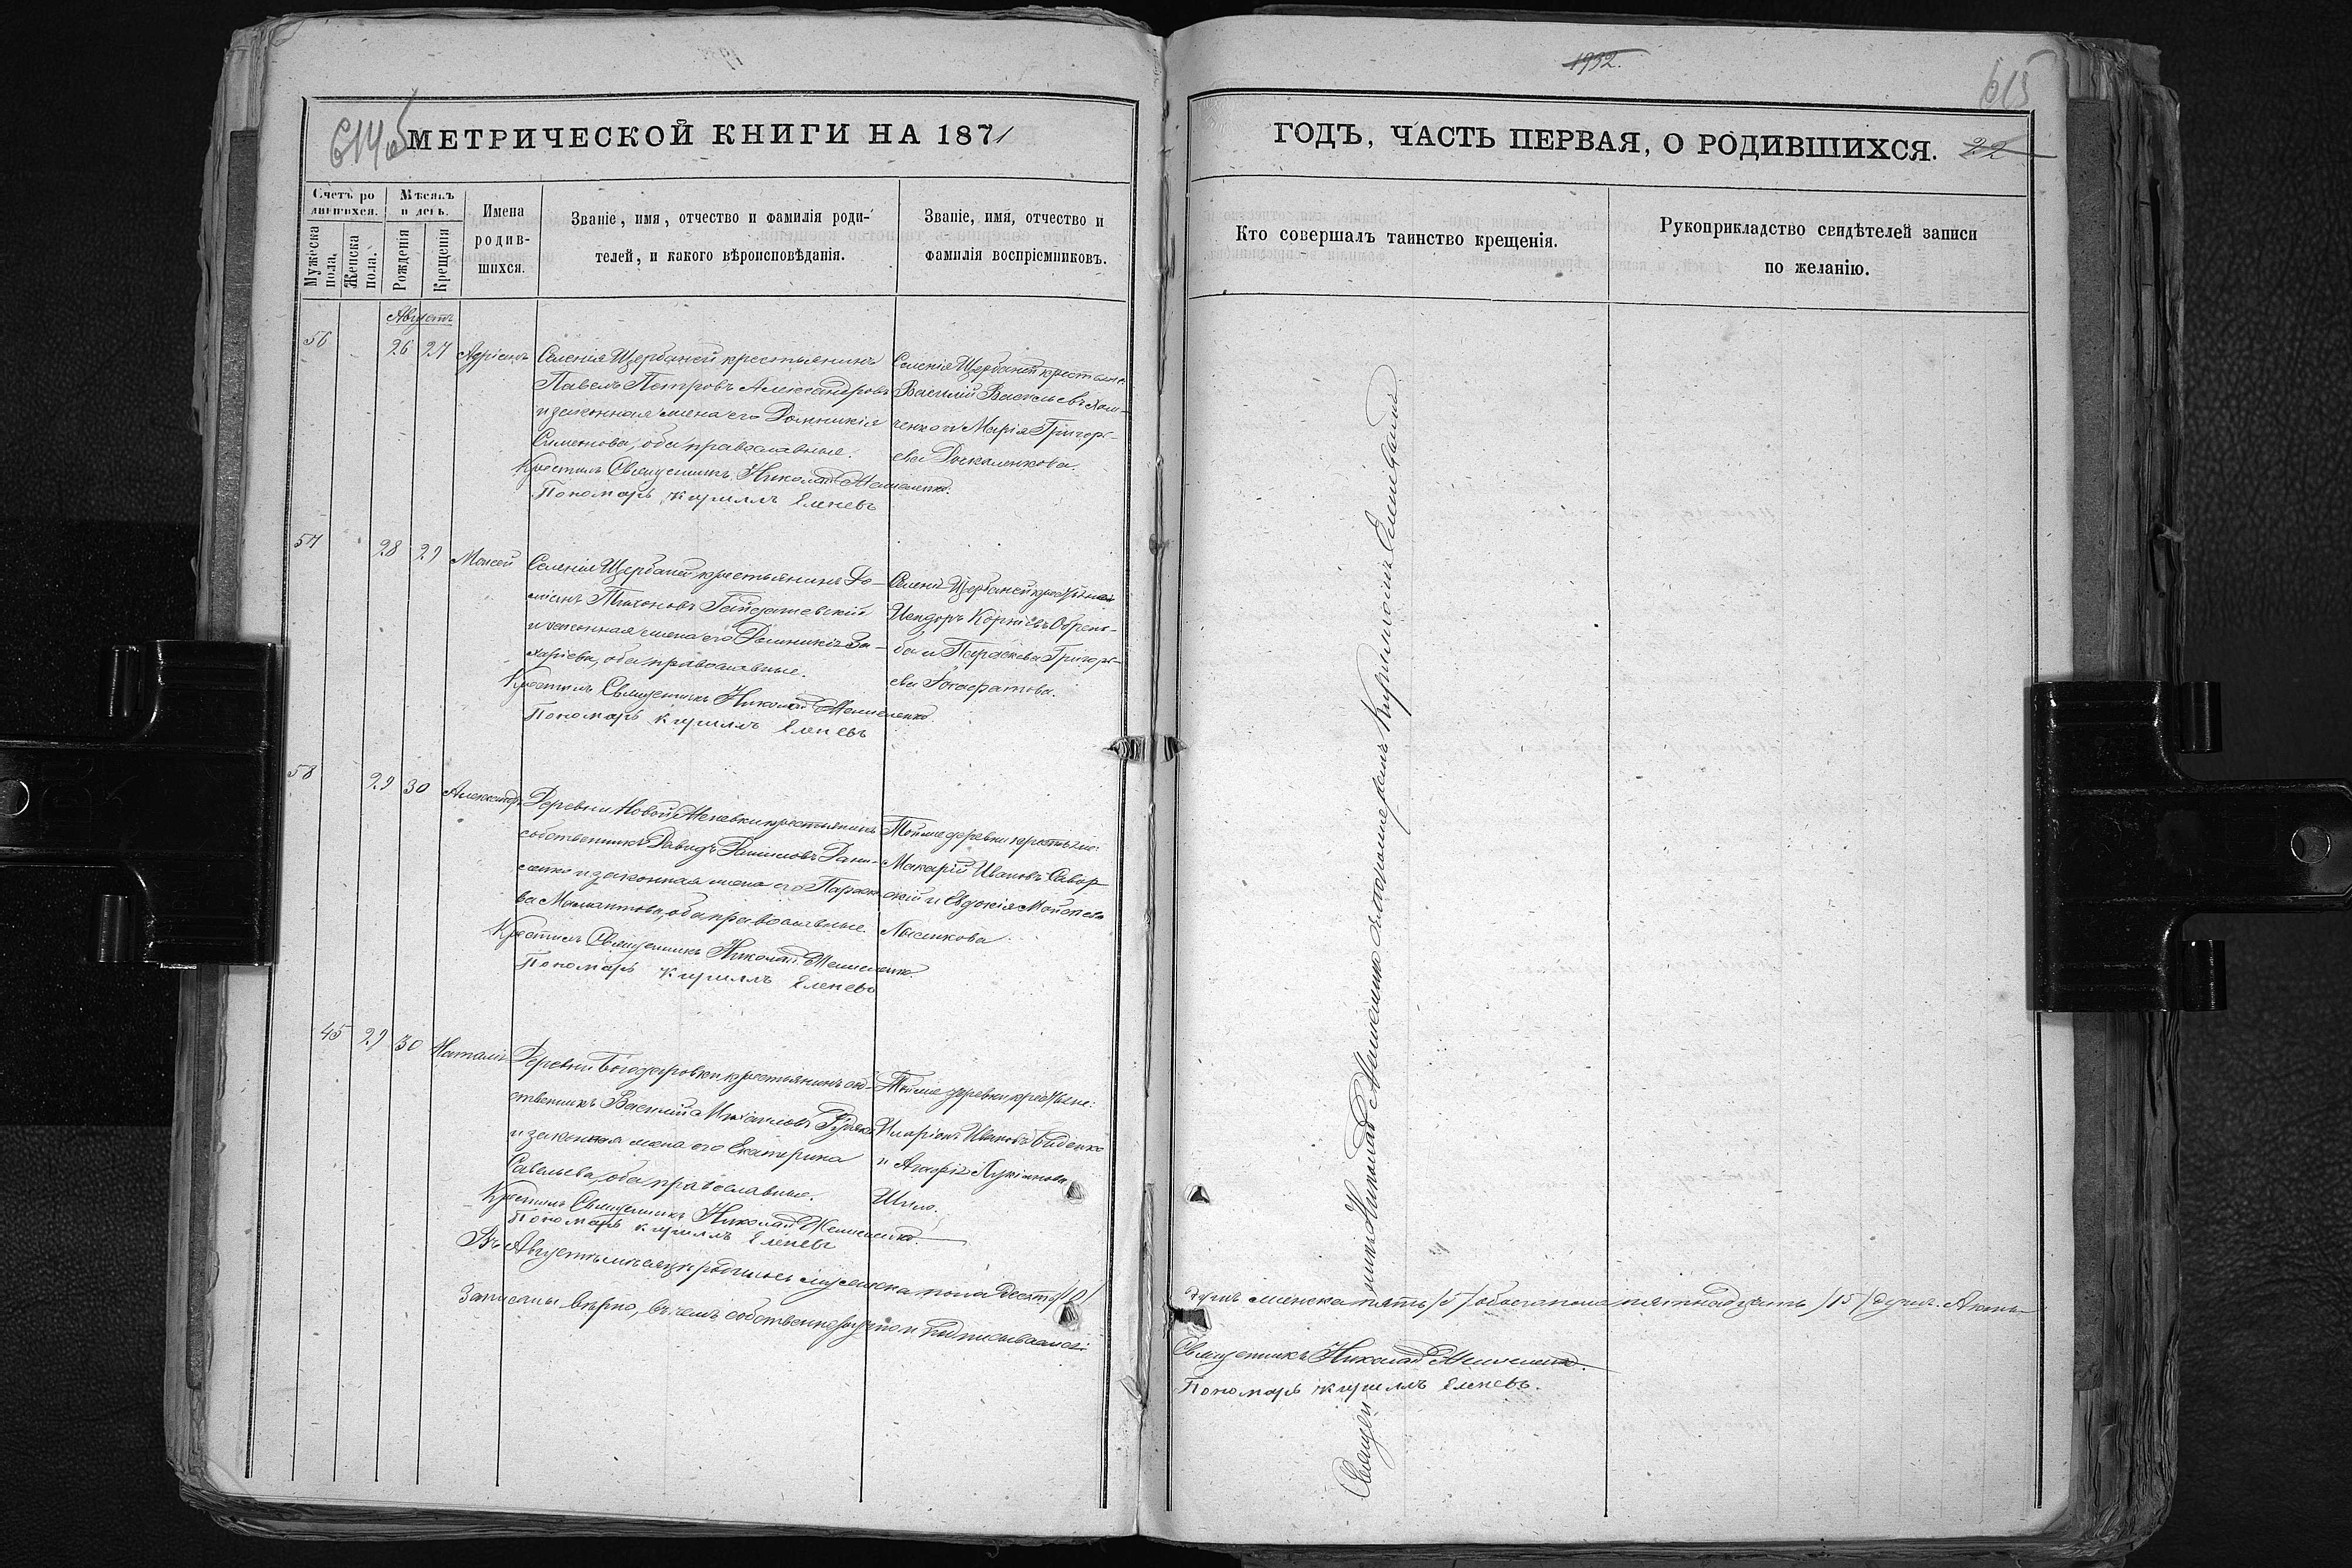 614об
МЕТРИЧЕСКОЙ КНИГИ НА 1871
Счетъ ро
дившихся.
Мѣсяцъ
и день.
Мужеска
пола.
Женска
пола.
Рожденія
Крещенія
Имена
родив-
шихся.
Званіе, имя, отчество и фамилія роди-
телей, и какого вѣроисповѣданія.
Званіе, имя, отчество и
фамилія воспріемниковъ.
Августъ
56 26 27 Адріанъ
Селенія Щербаней крестьянинъ
Павелъ Петровъ Александровъ
и законная жена его Домникія
Симеонова, оба православные.
Крестилъ Священникъ Николай
Пономарь Кириллъ Еленевъ
Селенія Щербаней крестьяне:
Василій Васильевъ
ченко и Марія Григорь-
ева
57 28 29 Моисей
Селенія Щербаней крестьянинъ До-
Тихоновъ Гайдашевскій
и законная жена его Домникія За-
харіева, оба православные.
Крестилъ Священникъ Николай
Пономарь Кириллъ Еленевъ
Селенія Щербаней крестьяне
Исидоръ Корніевъ
ба и Параскева Григорь-
ева
58 29 30 Александръ
Деревни Новой крестьянинъ
собственникъ Давидъ Даниловъ Дани-
ленко и законная жена его Параске-
ва Мамантова, оба православные.
Крестилъ Священникъ Николай
Пономарь Кириллъ Еленевъ
Той же деревни крестьяне:
Макарій Ивановъ Савор
скій и Евдокія Моисеева
Лысенкова
45 29 30 Наталія
Деревни Богодаровки крестьянинъ соб-
ственникъ Василій Михаиловъ
и законная жена его Екатерина
Савельева, оба православные.
Крестилъ Священникъ Николай
Пономарь Кириллъ Еленевъ
Той же деревни крестьяне:
Иларіонъ Ивановъ
и Агафія Лукіанова
Шило.
Въ Августѣ мѣсяцѣ родилось мужеска пола десять /10/
Записаны вѣрно, въ чемъ собственноручно и подписываемся:
1932.
615
ГОДЪ, ЧАСТЬ ПЕРВАЯ, О РОДИВШИХСЯ. 22
Кто совершалъ таинство крещенія.
Рукоприкладство свидѣтелей записи
по желанію.
Священникъ Николай съ пономаремъ Кирилломъ
душъ женска пять /5/ обоего пола пятнадцать /15/ душъ. Акты
Священникъ Николай
Пономарь Кириллъ Еленевъ.